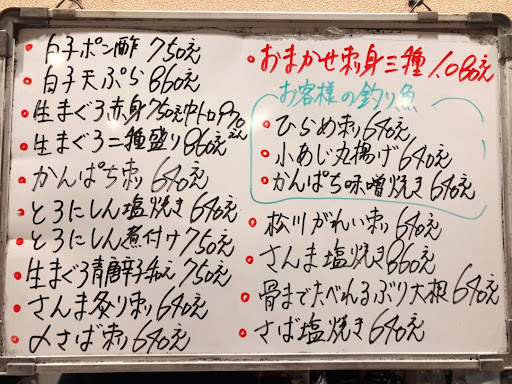 白子ポン酢 750え
白子天ぷら 860え
生まぐろ赤身750え中トロ970え
生まぐろ二種盛り860え
かんぱち刺 640え
とろにしん塩焼き 640え
とろにしん煮付け750え
生まぐろ青唐辛子和え 750え
さんま炙り刺 640え
〆さば刺 640え
おまかせ刺身三種 1.080え
お客様の釣り魚
ひらめ刺 640え
小あじ丸揚げ 640え
かんぱち味噌焼き 640え
松川がれい刺 640え
さんま塩焼き860え
骨までたべれるぶり大根 640え
さば塩焼き 640え